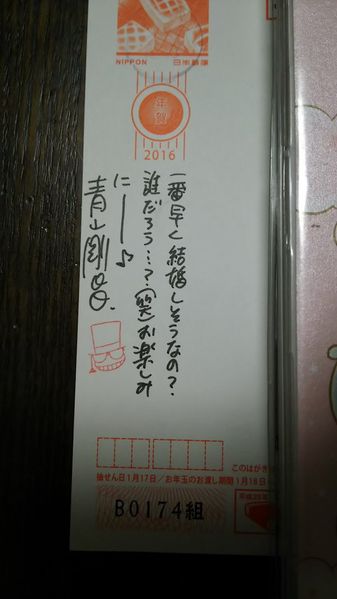 NIPPON 日本郵便
年賀
2016
一番早く結婚しそうなの？
誰だろう…？(笑)お楽しみ
にー♪
青山剛昌
このはがき
抽せん日1月17日／お年玉のお渡し期間1月18日
平成28年
B0174組